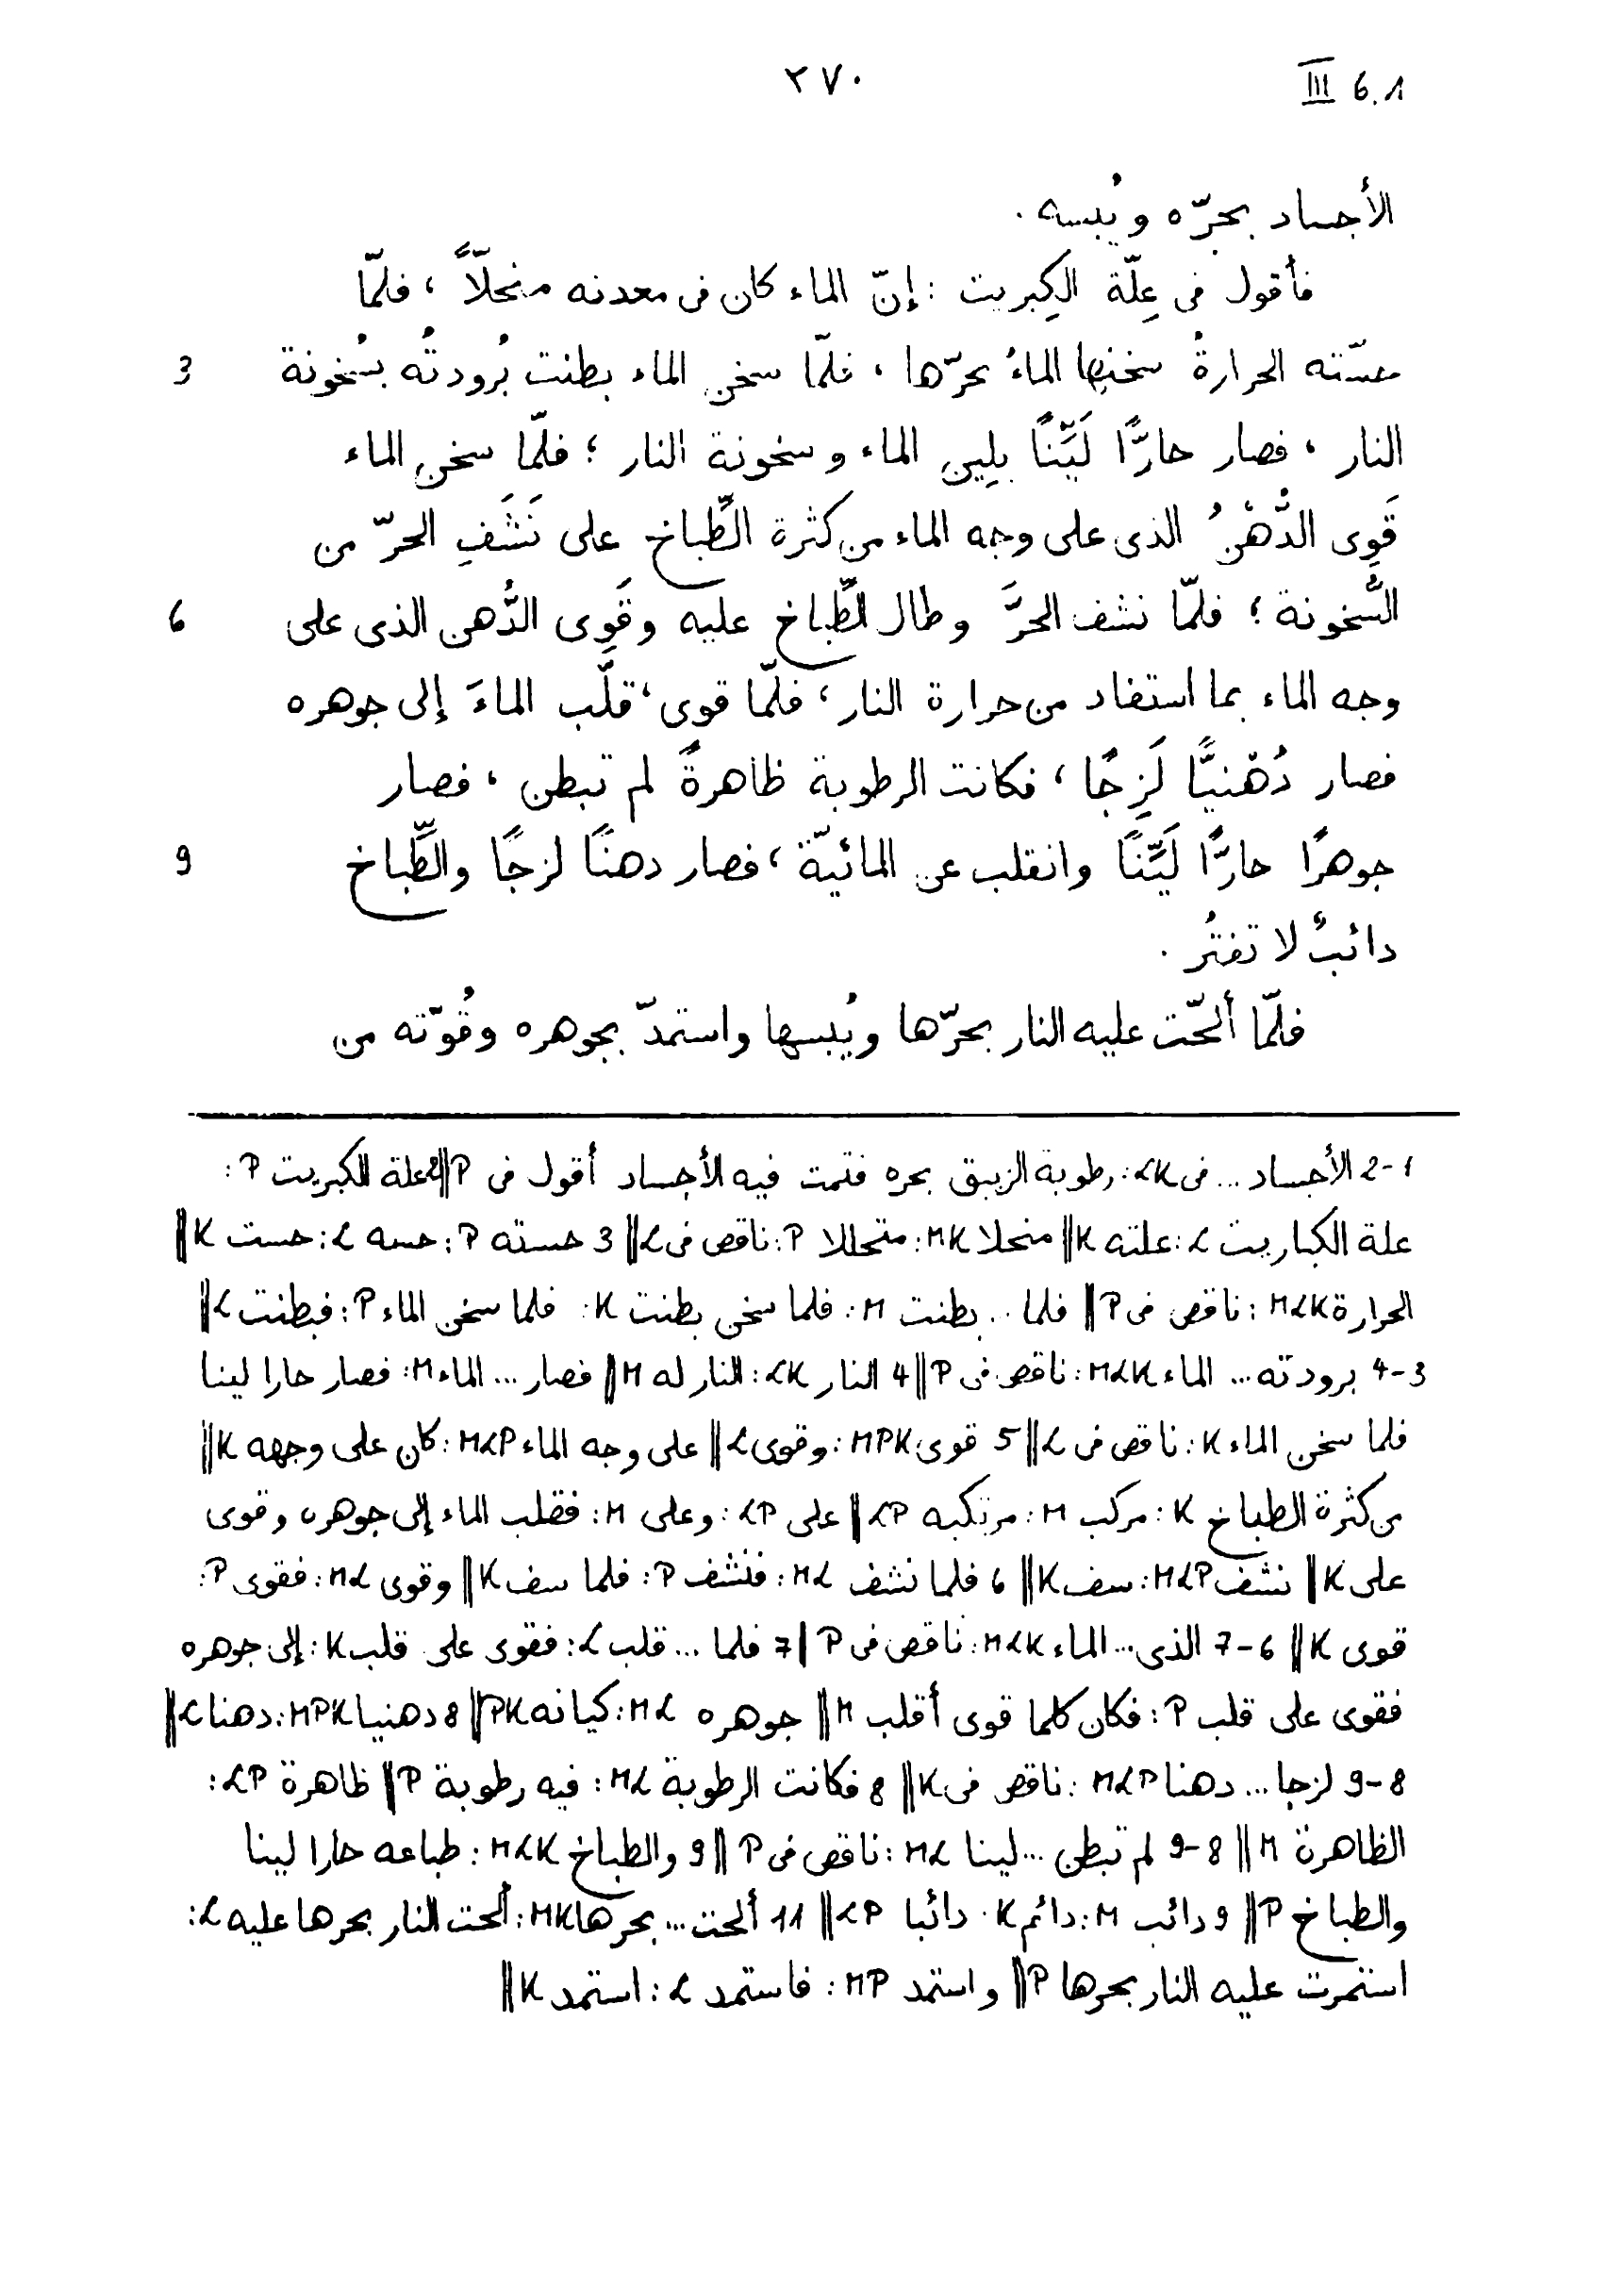 ٢٧٠
III 6.1
الأجساد بحرّه ويُبسه .
فأقول فى عِلّة الكِبريت : إنّ الماء كان فى معدنه منحلّاً ، فلمّا
مسّته الحرارةُ سخنها الماءُ بحرّها ، فلمّا سخن الماء بطنت بُرودتُه بسُخونة
3
النار ، فصار حارًّا لَيِّنًا بلِين الماء وسخونة النار ؛ فلمّا سخن الماء
قَوِى الدُّهْنُ الذى على وجه الماء من كثرة الطِّباخ على نَشَفِ الحرّ من
السُّخونة ؛ فلمّا نشف الحرَّ وطال الطِّباخ عليه وقَوِى الدُّهن الذى على
6
وجه الماء بما استفاد من حرارة النار ، فلمّا قوى ، قلّب الماءَ إلى جوهره
فصار دُهْنيًّا لَزِجًا ، فكانت الرطوبة ظاهرةً لم تبطن ، فصار
جوهرًا حارًّا لَيِّنًا وانقلب عن المائيّة ، فصار دهنًا لزجًا والطِّباخ
9
دائبٌ لا تفتُر .
فلمّا ألحّت عليه النار بحرّها ويُبسها واستمدّ بجوهره وقُوّته من
1-2 الأجساد ... فى LK : رطوبة الزيبق بحره فتمت فيه الأجساد أقول فى P || 2 علة الكبريت P :
علة الكباريت L : علته K || منحلا MK : متحللا P : ناقص فى L || 3 حسته P : حسه L : حست K ||
الحرارة MLK : ناقص فى P || فلما ... بطنت M : فلما سخن بطنت K : فلما سخن الماء P : فبطنت L ||
3-4 برودته ... الماء MLK : ناقص فى P || 4 النار LK : النار له M || فصار ... الماء M : فصار حارا لينا
فلما سخن الماء K : ناقص فى L || 5 قوى MPK : وقوى L || على وجه الماء MLP : كان على وجهه K ||
من كثرة الطباخ K : مركب M : مرتكبه LP || على LP : وعلى M : فقلب الماء إلى جوهره وقوى
على K || نشف MLP : سف K || 6 فلما نشف ML : فنشف P : فلما سف K || وقوى ML : فقوى P :
قوى K || 6-7 الذى ... الماء MLK : ناقص فى P || 7 فلما ... قلب L : فقوى على قلب K : إلى جوهره
فقوى على قلب P : فكان كلما قوى أقلب M || جوهره ML : كيانه PK || 8 دهنيا MPK : دهنا L ||
8-9 لزجا ... دهنا MLP : ناقص فى K || 8 فكانت الرطوبة ML : فيه رطوبة P || ظاهرة LP :
الظاهرة M || 8-9 لم تبطن ... لينا ML : ناقص فى P || 9 والطباخ MLK : طباعه حارا لينا
والطباخ P || 9 دائب M : دائم K . دائبا LP || 11 ألحت ... بحرها MK : ألحت النار بحرها عليه L :
استمرت عليه النار بحرها P || واستمد MP : فاستمد L : استمد K ||